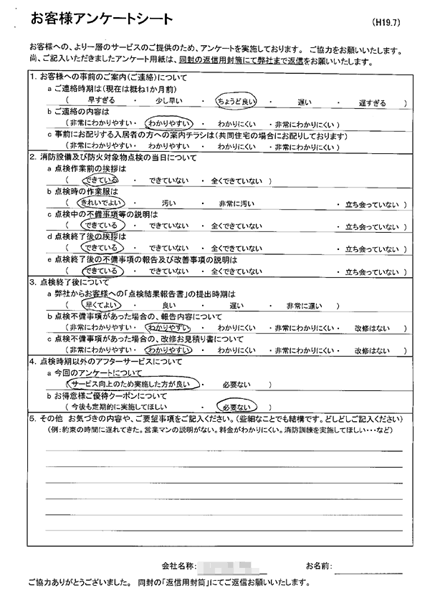 お客様アンケートシート
(H19.7)
お客様への、より一層のサービスのご提供のため、アンケートを実施しております。 ご協力をお願いいたします。
尚、ご記入いただきましたアンケート用紙は、同封の返信用封筒にて弊社まで返信をお願いいたします。
1. お客様への事前のご案内(ご連絡)について
a ご連絡時期は(現在は概ね1か月前)
( 早すぎる ・ 少し早い ・ ちょうど良い ・ 遅い ・ 遅すぎる )
b ご連絡の内容は
(非常にわかりやすい・ わかりやすい ・ わかりにくい ・非常にわかりにくい )
c 事前にお配りする入居者の方への案内チラシは(共同住宅の場合にお配りしております)
(非常にわかりやすい・ わかりやすい ・ わかりにくい ・非常にわかりにくい )
2. 消防設備及び防火対象物点検の当日について
a 点検作業前の挨拶は
( できている ・ できていない ・全くできていない )
b 点検時の作業服は
( きれいでよい ・ 汚い ・ 非常に汚い ・ 立ち会っていない )
c 点検中の不備事項等の説明は
( できている ・ できていない ・全くできていない ・ 立ち会っていない )
d 点検終了後の挨拶は
( できている ・ できていない ・全くできていない ・ 立ち会っていない )
e 点検終了後の不備事項の報告及び改善事項の説明は
( できている ・ できていない ・全くできていない ・ 立ち会っていない )
3. 点検終了後について
a 弊社からお客様への「点検結果報告書」の提出時期は
( 早くてよい ・ 良い ・ 遅い ・ 非常に遅い )
b 点検不備事項があった場合の、報告内容について
(非常にわかりやすい・ わかりやすい ・ わかりにくい ・非常にわかりにくい・ 改修はない)
c 点検不備事項があった場合の、改修お見積り書について
(非常にわかりやすい・ わかりやすい ・ わかりにくい ・非常にわかりにくい・ 改修はない)
4. 点検時期以外のアフターサービスについて
a 今回のアンケートについて
(サービス向上のため実施した方が良い ・ 必要ない )
b お得意様ご優待クーポンについて
( 今後も定期的に実施してほしい ・ 必要ない )
5. その他 お気づきの内容や、ご要望事項をご記入ください。(些細なことでも結構です。どしどしご記入ください)
(例:約束の時間に遅れてきた。営業マンの説明がない。料金がわかりにくい。消防訓練を実施してほしい・・・など)
会社名称:
お名前:
ご協力ありがとうございました。 同封の「返信用封筒」にてご返信お願いいたします。